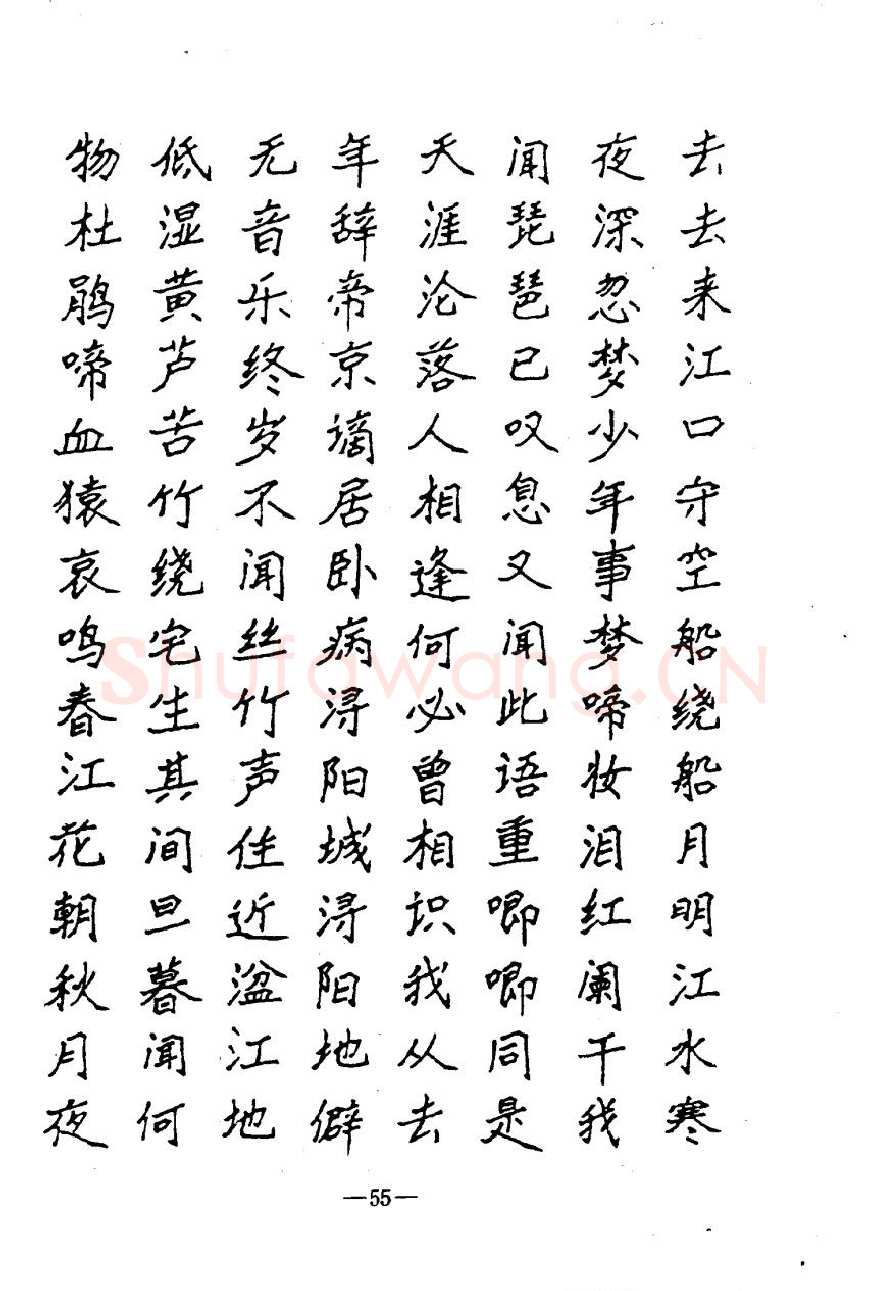 去去来江口守空船绕船月明江水寒
夜深忽梦少年事梦啼妆泪红阑干我
闻琵琶已叹息又闻此语重唧唧同是
天涯沦落人相逢何必曾相识我从去
年辞帝京谪居卧病浔阳城浔阳地僻
无音乐终岁不闻丝竹声住近湓江地
低湿黄芦苦竹绕宅生其间旦暮闻何
物杜鹃啼血猿哀鸣春江花朝秋月夜
Shufawang.CN
—55—